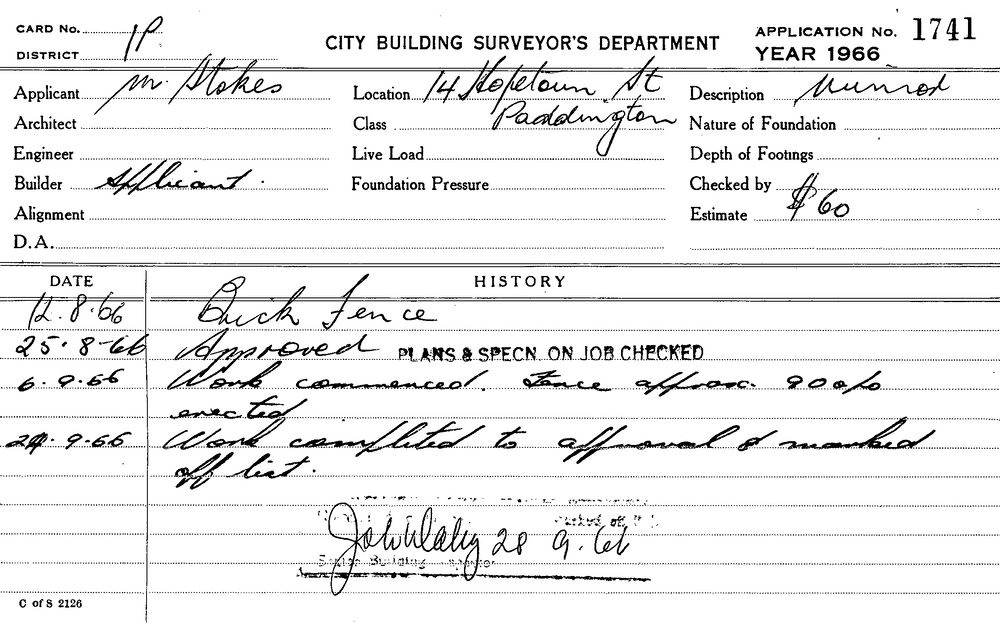 CARD No. 1P
DISTRICT
CITY BUILDING SURVEYOR'S DEPARTMENT
APPLICATION No. 1741
YEAR 1966
Applicant M. Stokes
Location 14 Hopetoun St
Paddington
Description Munrod
Architect
Class
Nature of Foundation
Engineer
Live Load
Depth of Footings
Builder Applicant.
Foundation Pressure
Checked by
Alignment
Estimate $60
D.A.
DATE HISTORY
12.8.66 Brick Fence
25.8-66 Approved PLANS & SPECN. ON JOB CHECKED
6.9.66 Work commenced. Fence approx. 90%
erected
24.9.66 Work completed to approval & marked
off list.
28 9.66
Senior Building
C of S 2126